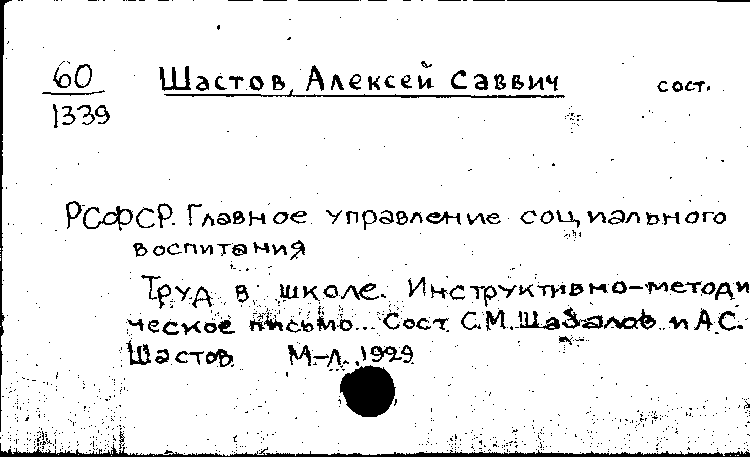 60 Шастов, Алексей Саввич сост.
1339
РСФСР. Главное управление социального
воспитания
Труд в школе. Инструктивно-методи
ческое письмо... Сост. С.М. Шабалов и А.С.
Шастов. М.-Л., 1929